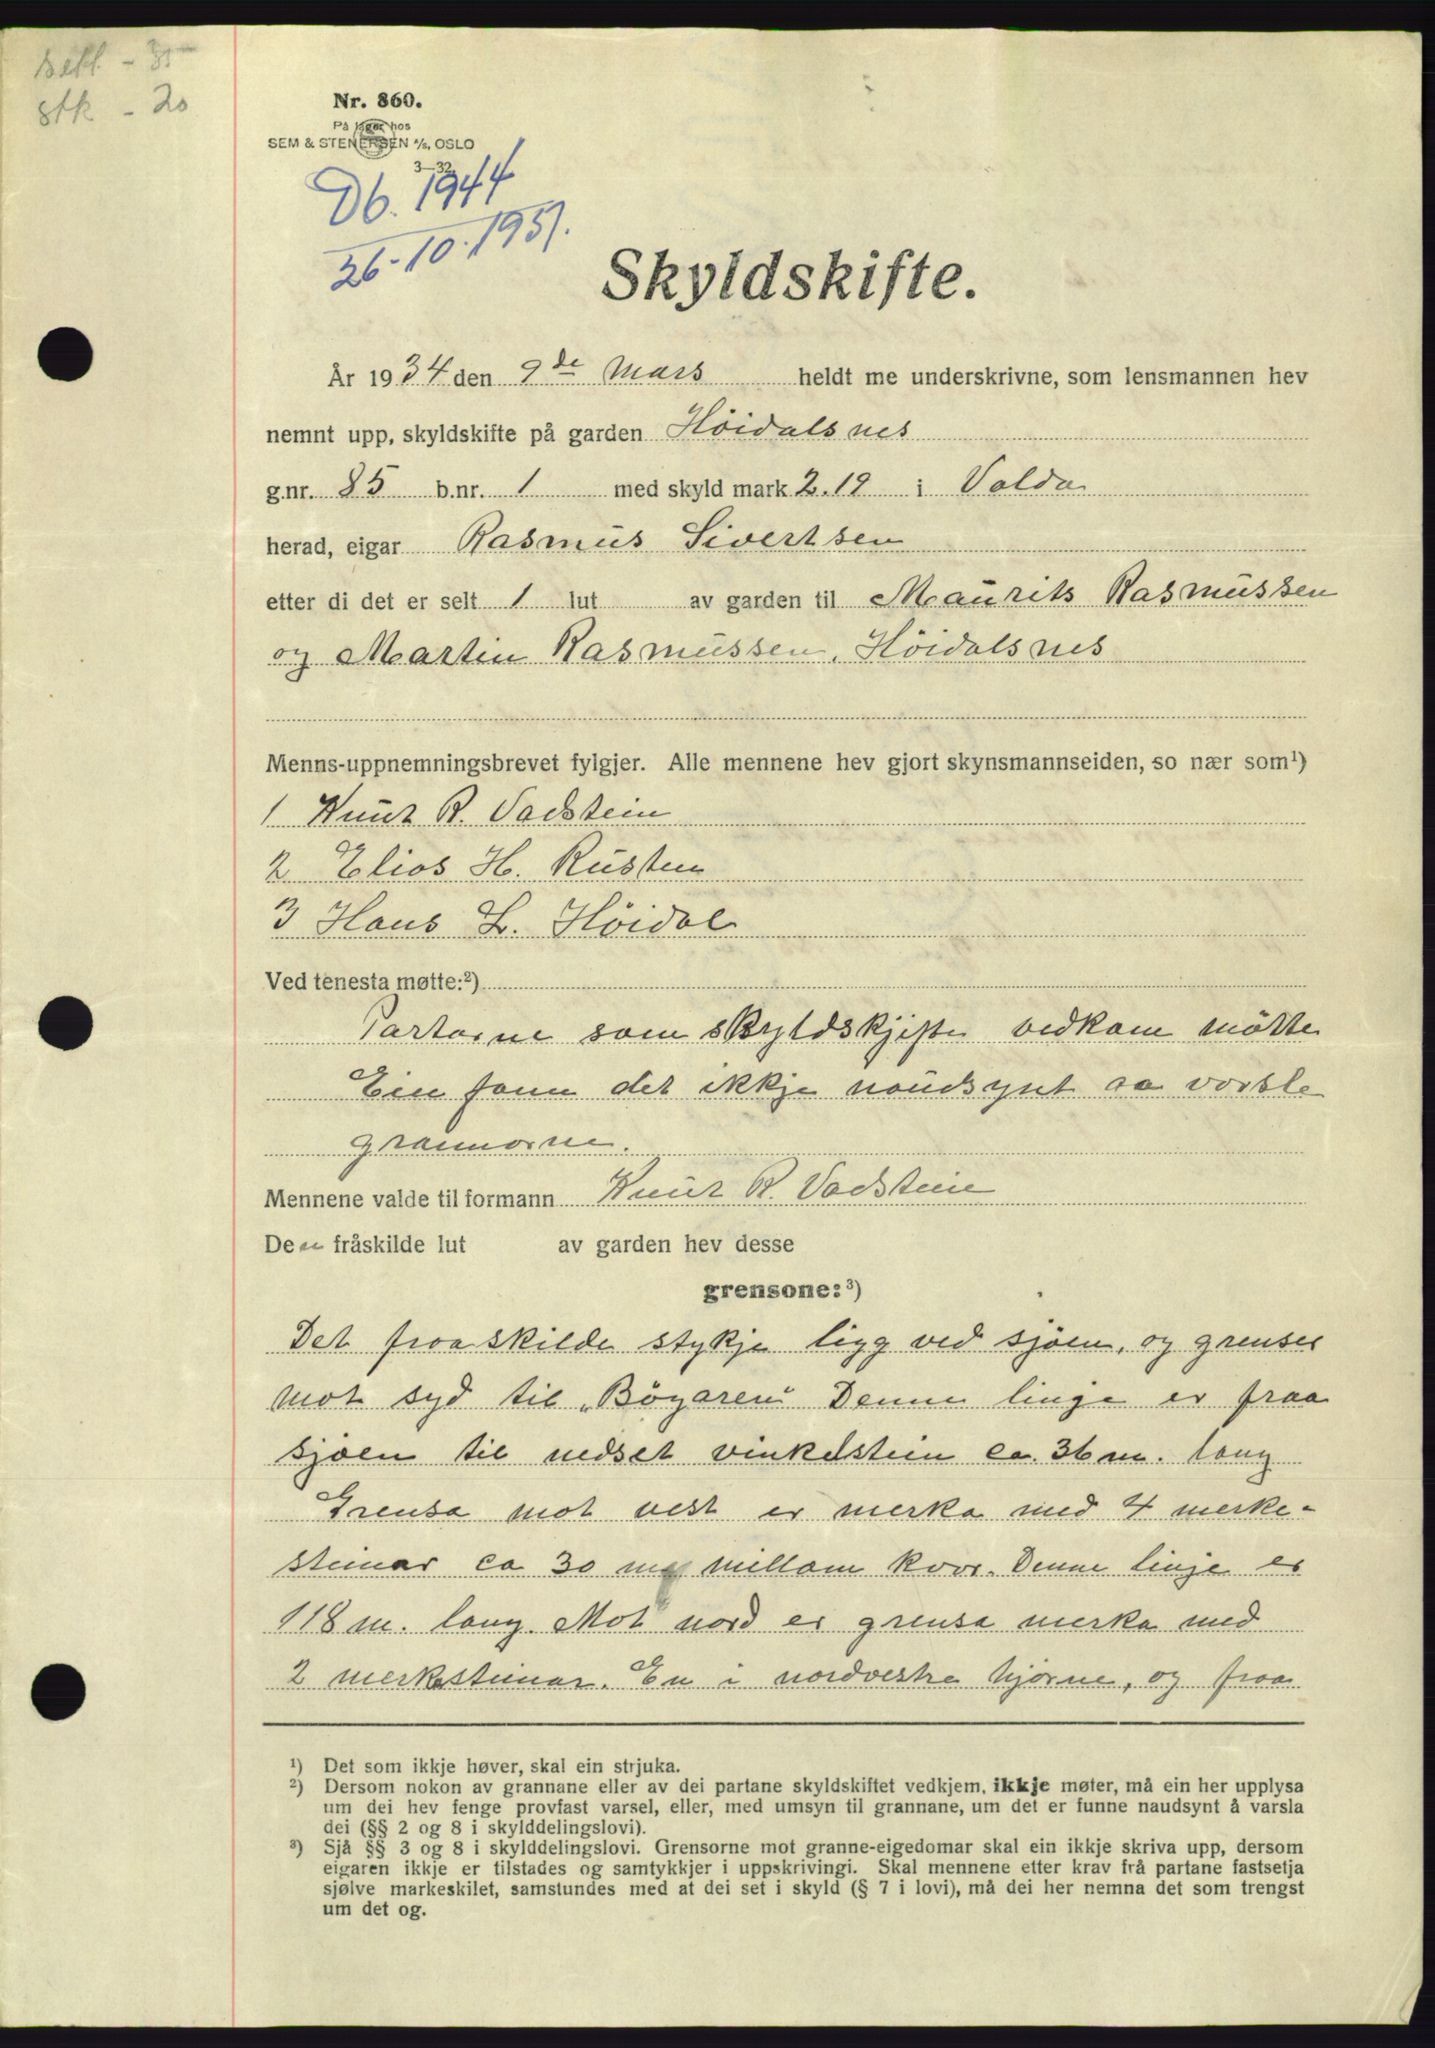 sett. - 35
stk - 20
Nr. 860.
På lager hos
SEM & STENERSEN A/S, OSLO
3—32.
Db. 1944
26-10-1937.
Skyldskifte.
År 1934 den 9de Mars heldt me underskrivne, som lensmannen hev
nemnt upp, skyldskifte på garden Höidalsnes
g.nr. 85 b.nr. 1 med skyld mark 2.19 i Volda
herad, eigar Rasmus Sivertsen
etter di det er selt 1 lut av garden til Maurits Rasmussen
og Martin Rasmussen, Höidalsnes
Menns-uppnemningsbrevet fylgjer. Alle mennene hev gjort skynsmannseiden, so nær som¹)
1 Knut R. Vadstein
2 Elias H. Rusten
3 Hans L. Höidal
Ved tenesta møtte:²)
Partarne som skyldskjifte vedkam mötte
Ein fann det ikkje naudsynt aa varsle
grannarne.
Mennene valde til formann Knut R. Vadstein
Den fråskilde lut av garden hev desse
grensone:³)
Det fraaskilde stykje ligg ved sjöen, og grenser
mot syd til „Böyaren" Denne linje er fraa
sjöen til nedset vinkelstein ca. 36 m. lang
Grensa mot vest er merka med 4 merke-
steinar ca 30 m millom kvor. Denne linje er
118 m. lang. Mot nord er grensa merka med
2 merkesteinar. En i nordvestre hjörne, og fraa
¹) Det som ikkje høver, skal ein strjuka.
²) Dersom nokon av grannane eller av dei partane skyldskiftet vedkjem, ikkje møter, må ein her upplysa
um dei hev fenge provfast varsel, eller, med umsyn til grannane, um det er funne naudsynt å varsla
dei (§§ 2 og 8 i skylddelingslovi).
³) Sjå §§ 3 og 8 i skylddelingslovi. Grensorne mot granne-eigedomar skal ein ikkje skriva upp, dersom
eigaren ikkje er tilstades og samtykkjer i uppskrivingi. Skal mennene etter krav frå partane fastsetja
sjølve markeskilet, samstundes med at dei set i skyld (§ 7 i lovi), må dei her nemna det som trengst
um det og.